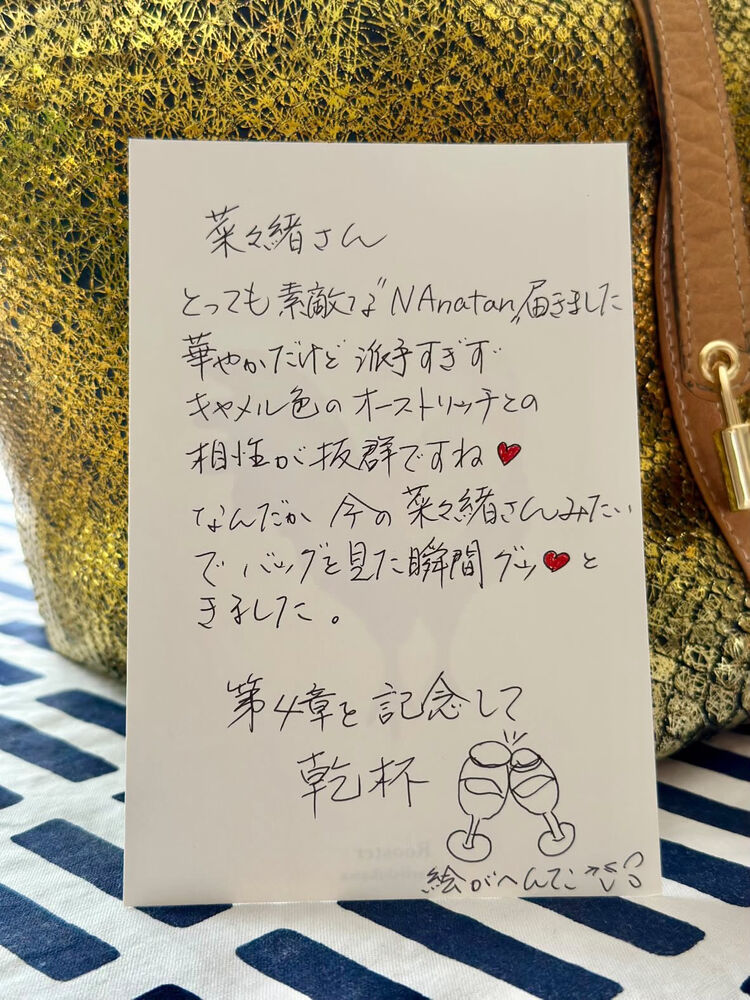 菜々緒さん
とっても素敵な"NAnatan"届きました
華やかだけど派手すぎず
キャメル色のオーストリッチとの
相性が抜群ですね♥
なんだか今の菜々緒さんみたい
でバッグを見た瞬間グッ♥と
きました。
第4章を記念して
乾杯
絵がへんてこ